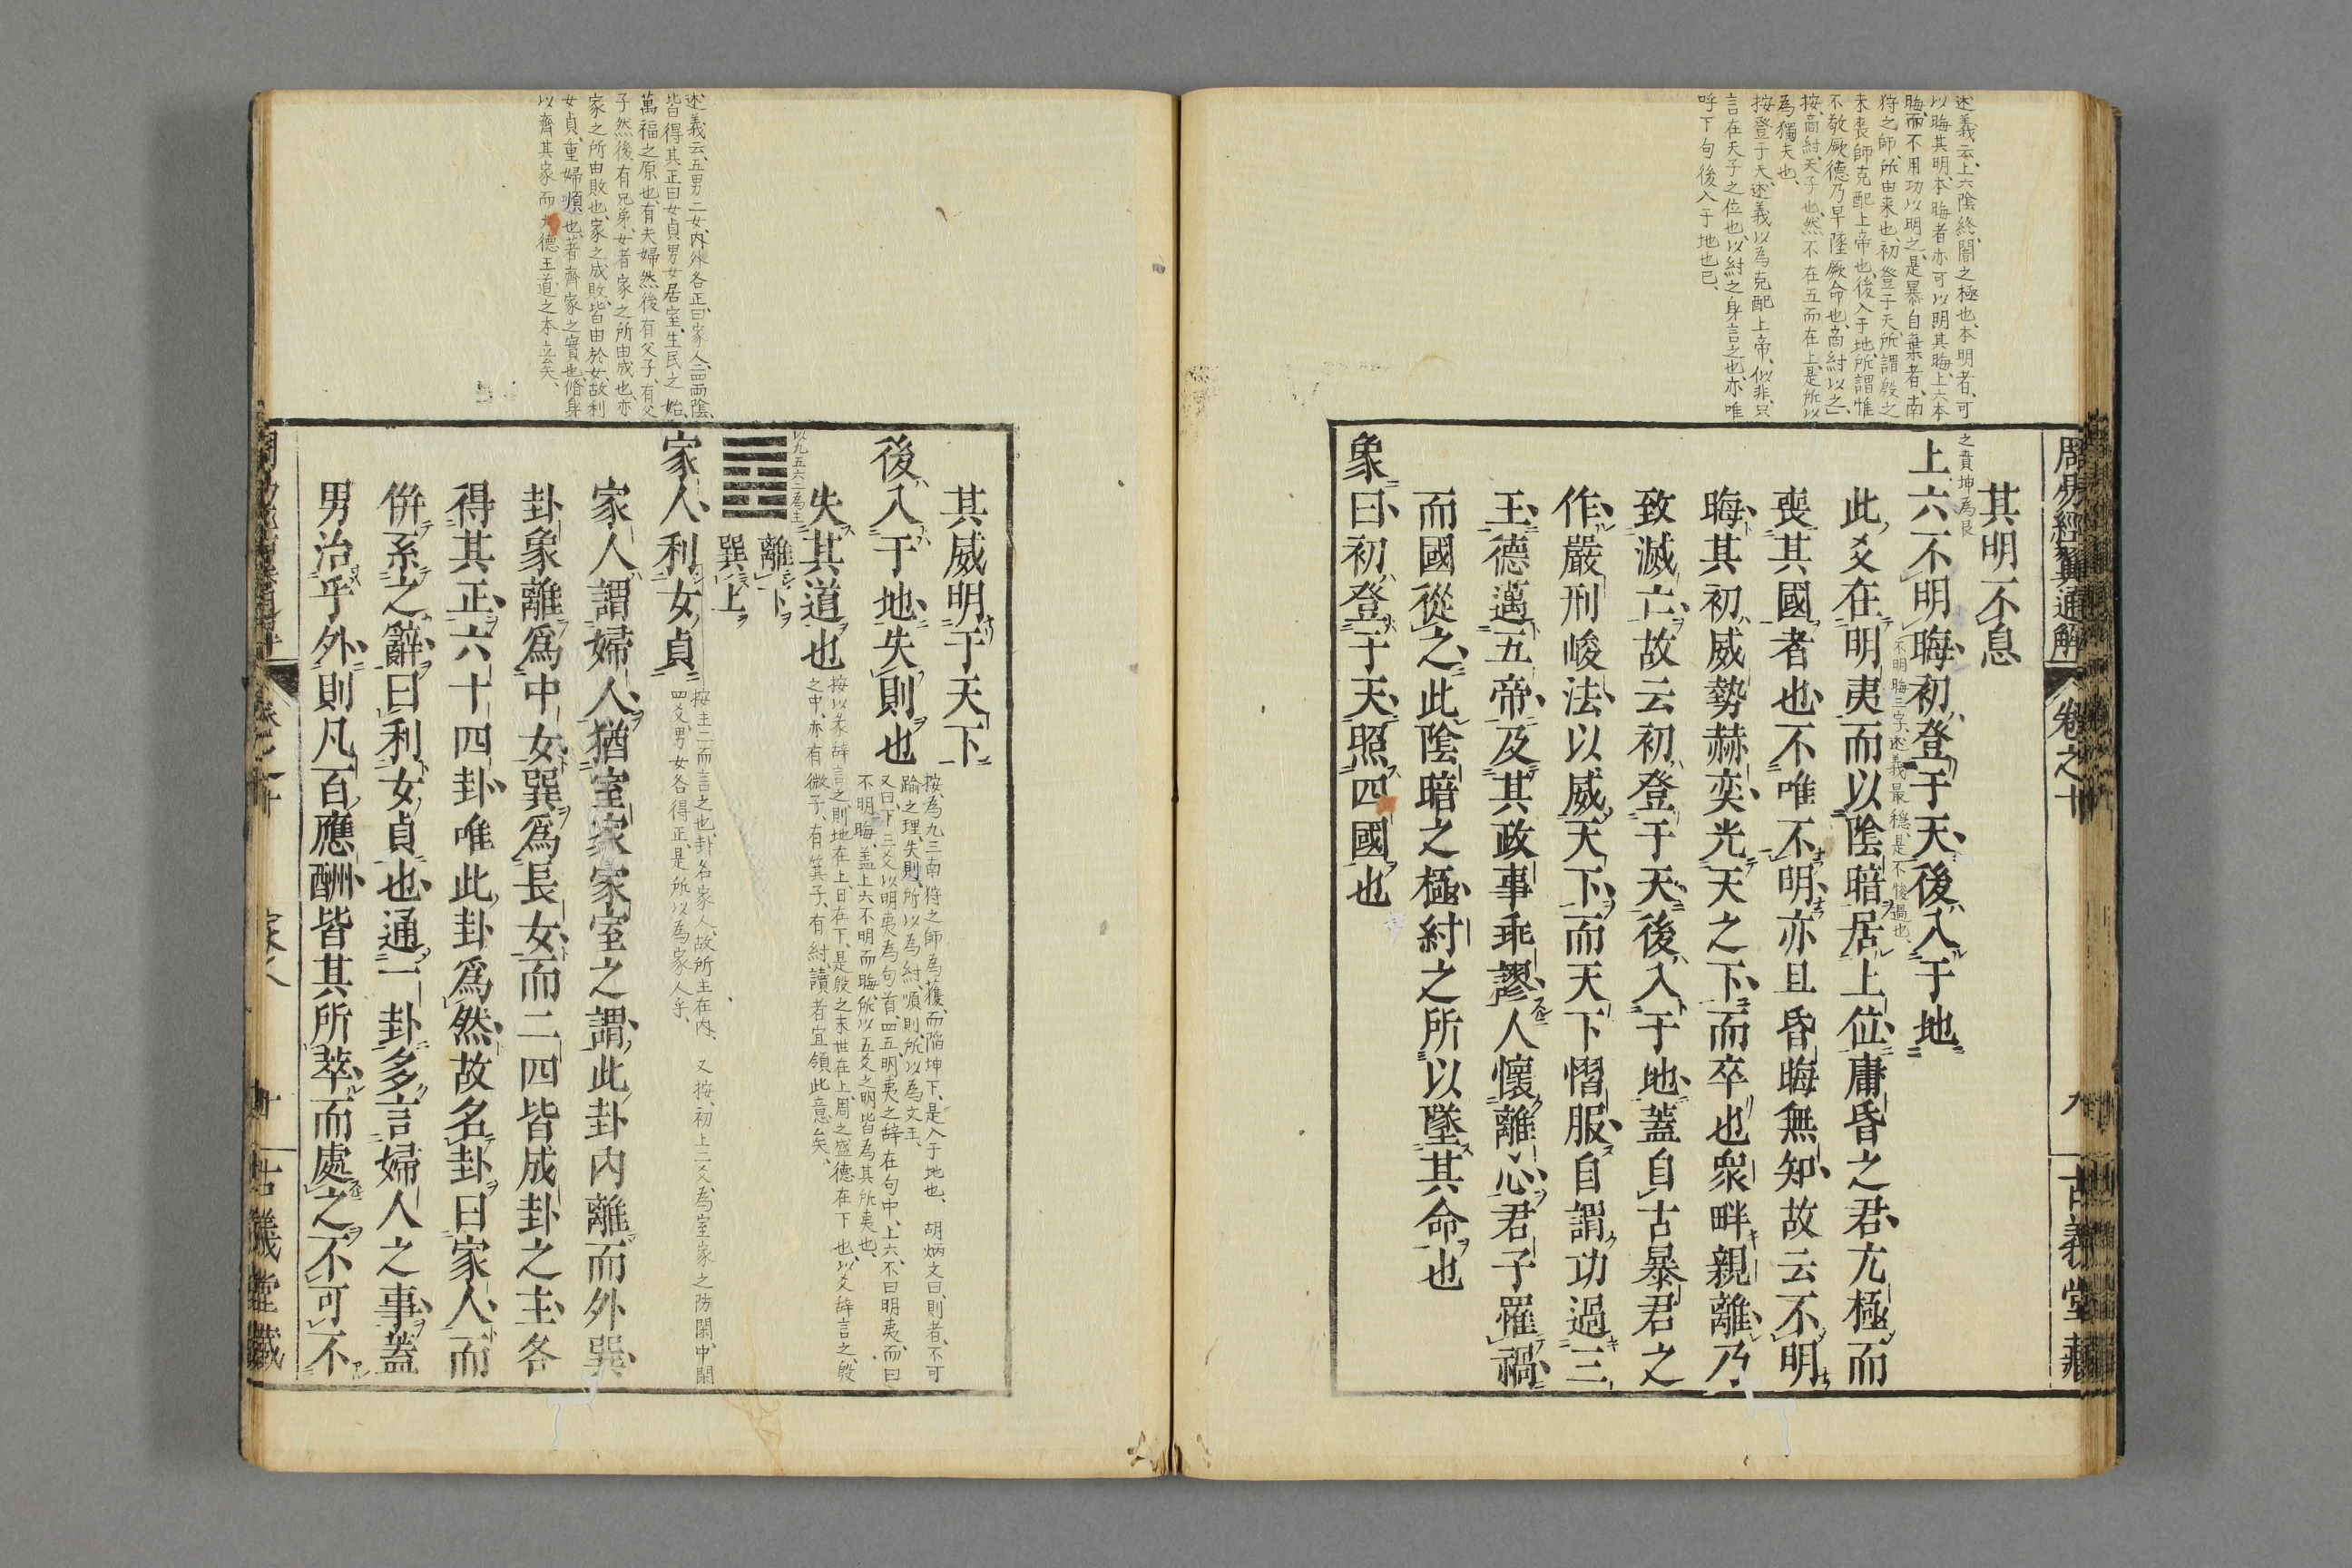 周易經翼通解
卷之十
九
古義堂藏
述義云、上六陰終、闇之極也、本明者、可
以晦其明、本晦者亦可以明其晦、上六本
晦、而不用功以明之、是暴自棄者、南
狩之師、所由来也、初登于天、所謂殷之
未喪師克配上帝也、後入于地、所謂惟
不敬厥德乃早墜厥命也、商紂以之」
按、商紂天子也、然不在五而在上、是所以
為獨夫也、
按登于天、述義以為克配上帝、似非、只
言在天子之位也、以紂之身言之也、亦唯
呼下句後入于地也已、
其明不息
之賁坤為艮
上六不明晦初登于天後入于地
不明晦三字、述義最穩、是不悛過也、
此爻在明夷而以陰暗居上位庸昏之君亢極而
喪其國者也不唯不明亦且昏晦無知故云不明
晦其初威勢赫奕光天之下而卒也衆畔親離乃
致滅亡故云初登于天後入于地蓋自古暴君之
作嚴刑峻法以威天下而天下慴服自謂功過三
王德邁五帝及其政事乖謬人懷離心君子罹禍
而國從之此陰暗之極紂之所以墜其命也
象曰初登于天照四國也
述義云、五男二女、内外各正、曰家人、四兩陰、
皆得其正、曰女貞、男女居室、生民之始、
萬福之原也、有夫婦然後有父子、有父
子然後有兄弟、女者家之所由成也、亦
家之所由敗也、家之成敗、皆由於女、故利
女貞、重婦順也、著齊家之實也、脩身
以齊其家而大德王道之本立矣、
其威明于天下
後入于地失則也
按、為九三南狩之師為獲、而陷坤下、是入于地也、 胡炳文曰、則者、不可
踰之理、失則、所以為紂、順則、所以為文王、
又曰、下三爻以明夷為句首、四五明夷之辞在句中、上六、不曰明夷、而曰
不明晦、盖上六不明而晦、所以五爻之明皆為其所夷也、
失其道也
按以象辞言之、則地在上、日在下、是殷之末世在上、周之盛德在下也、以爻辞言之、殷
之中、亦有微子、有箕子、有紂、讀者宜領此意矣、
以九五六二為主
離下
巽上
家人利女貞
按主二而言之也、卦名家人、故所主在内、 又按、初上二爻、為室家之防閑、中閑
四爻、男女各得正、是所以為家人乎、
家人謂婦人猶室家家室之謂此卦内離而外巽
卦象離爲中女巽爲長女而二四皆成卦之主各
得其正六十四卦唯此卦爲然故名卦曰家人而
併系之辭曰利女貞也通一卦多言婦人之事蓋
男治乎外則凡百應酬皆其所莅而處之不可不
家人
十
古義堂藏